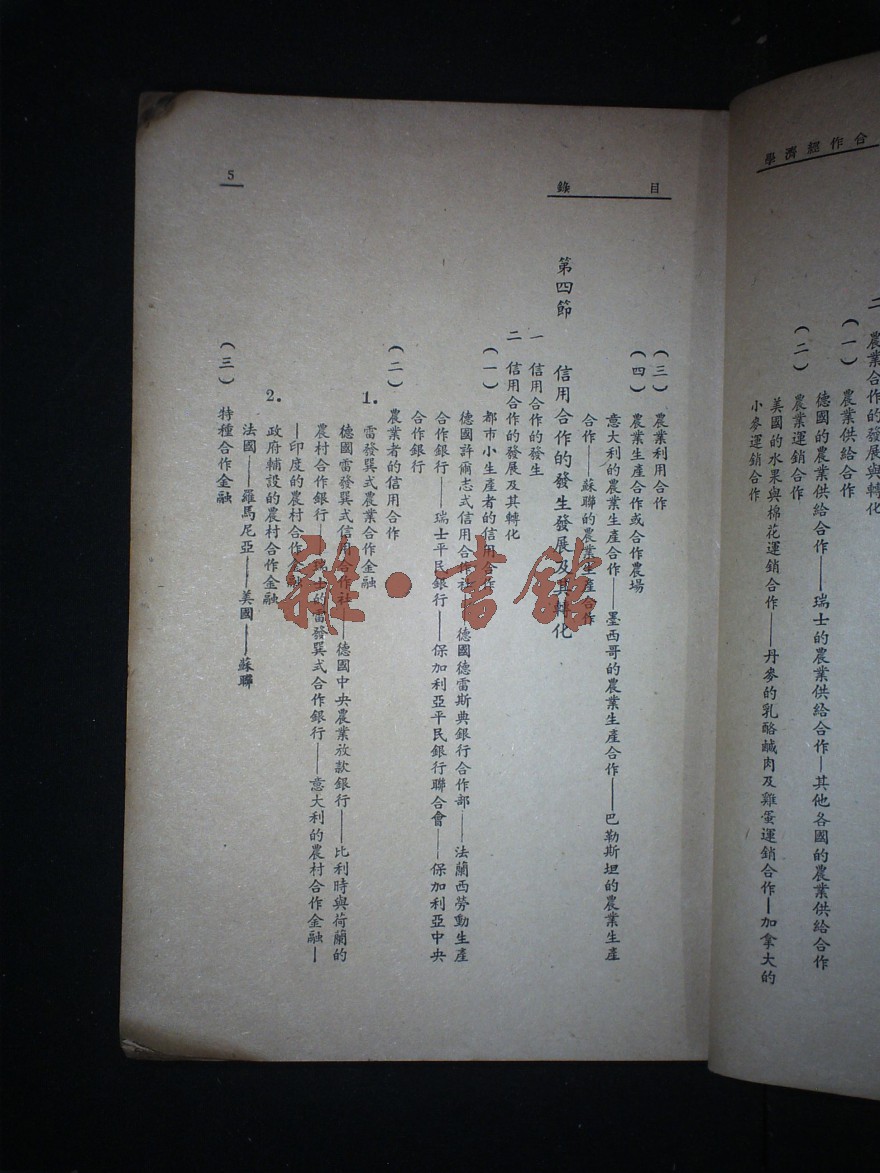 合作經濟學
農業合作的發展與轉化
(一) 農業供給合作
德國的農業供給合作——瑞士的農業供給合作—其他各國的農業供給合作
(二) 農業運銷合作
美國的水果與棉花運銷合作——丹麥的乳酪鹹肉及雞蛋運銷合作—加拿大的
小麥運銷合作
目錄
5
(三) 農業利用合作
(四) 農業生產合作或合作農場
意大利的農業生產合作——墨西哥的農業生產合作——巴勒斯坦的農業生產
合作——蘇聯的農業生產合作
第四節 信用合作的發生發展及其轉化
一 信用合作的發生
二 信用合作的發展及其轉化
(一) 都市小生產者的信用合作
德國許爾志式信用合作社——德國德雷斯典銀行合作部——法蘭西勞動生產
合作銀行——瑞士平民銀行——保加利亞平民銀行聯合會——保加利亞中央
合作銀行
(二) 農業者的信用合作
1. 雷發巽式農業合作金融
德國雷發巽式信用合作社——德國中央農業放款銀行——比利時與荷蘭的
農村合作銀行——瑞士的雷發巽式合作銀行——意大利的農村合作金融—
—印度的農村合作金融
2. 政府輔設的農村合作金融
法國——羅馬尼亞——美國——蘇聯
(三) 特種合作金融
雜·書館